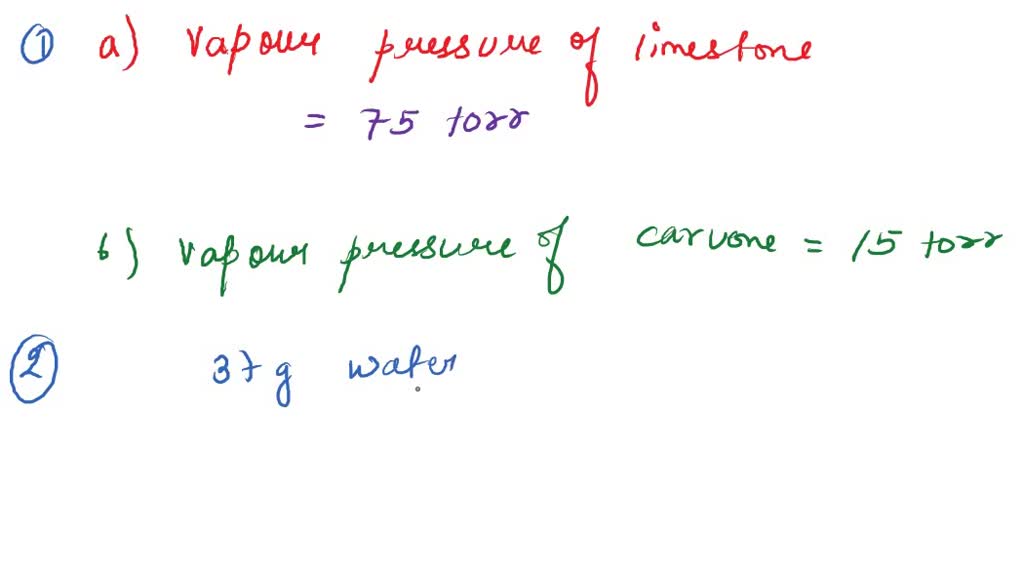 ① a) vapour pressure of limestone
= 75 torr
b) vapour pressure of carvone = 15 torr
② 37 g water